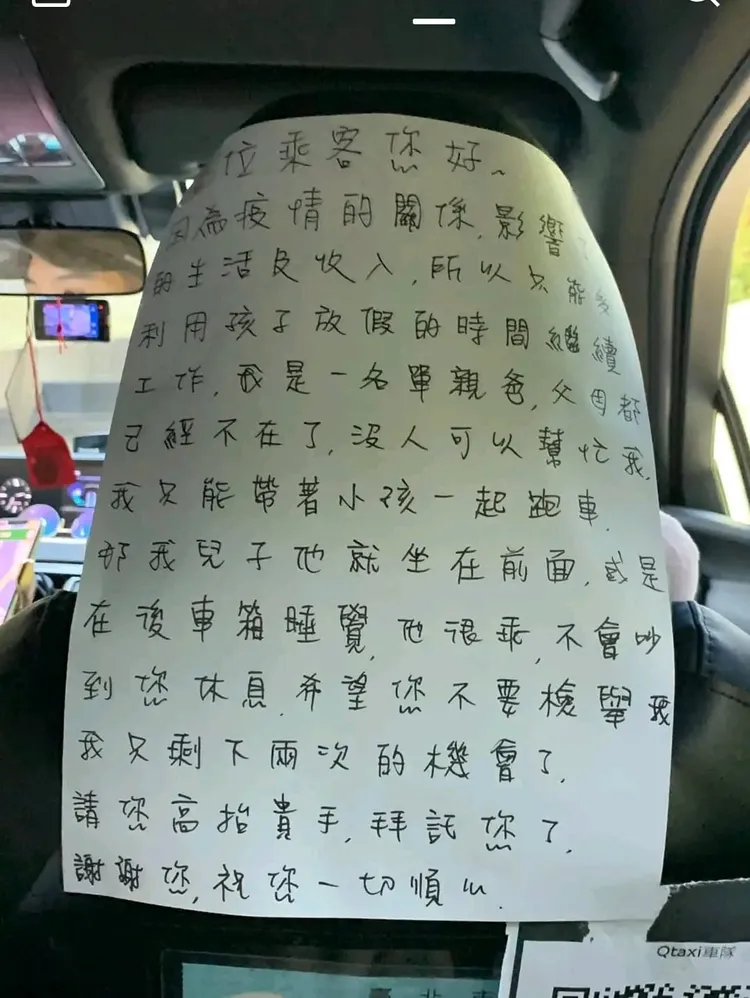 位乘客您好~
因為疫情的關係,影響
的生活及收入,所以只能多
利用孩子放假的時間繼續
工作,我是一名單親爸,父母都
已經不在了,沒人可以幫忙我,
我只能帶著小孩一起跑車,
那我兒子他就坐在前面,或是
在後車箱睡覺,他很乖,不會吵
到您休息,希望您不要檢舉我
我只剩下兩次的機會了,
請您高抬貴手,拜託您了,
謝謝您,祝您一切順心.
Qtaxi車隊